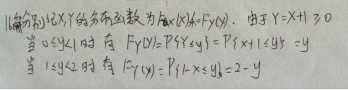 分别记X,Y的分布函数为Fx(x)和Fy(y). 由于Y=X+1≥0
当 0≤y<1时 有 Fy(y)=P{Y≤y}=P{x+1≤y}=y
当 1≤y<2时 有 Fy(y)=P{1-x≤y}=2-y